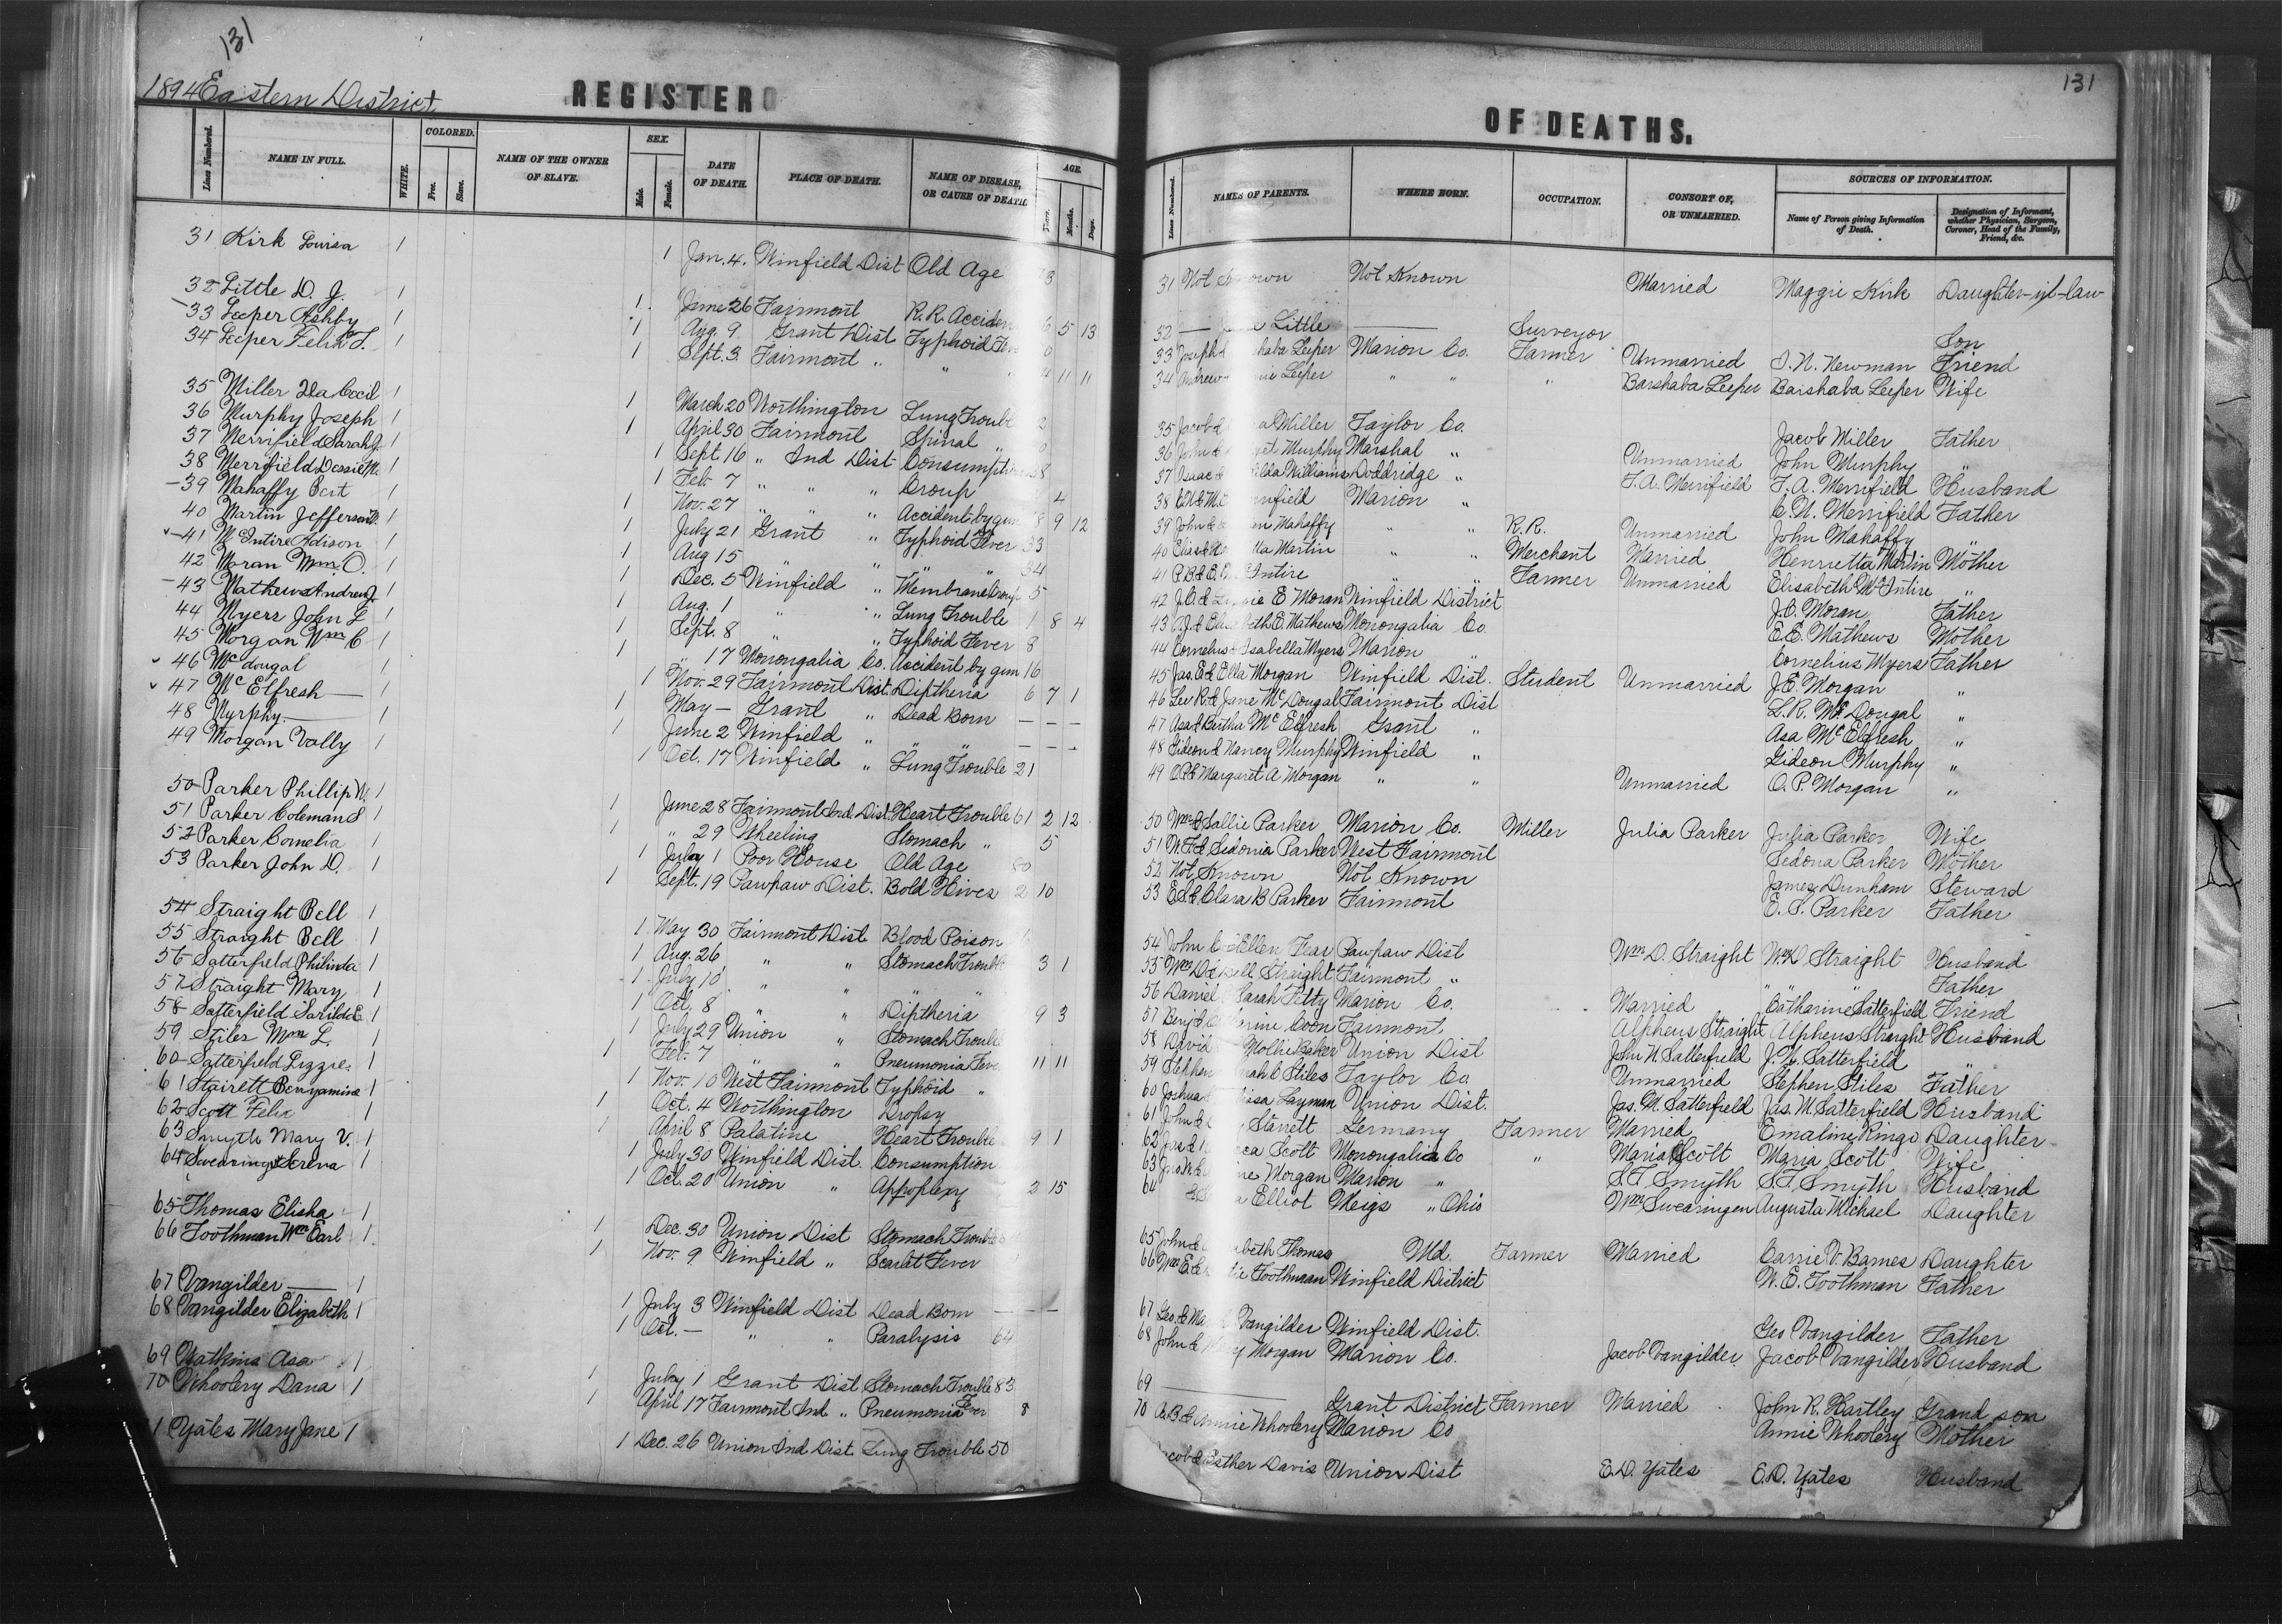 131
1894 Eastern District
REGISTER O
Lines Numbered. NAME IN FULL. WHITE. COLORED. Free. Slave. NAME OF THE OWNER OF SLAVE. SEX. Male. Female. DATE OF DEATH. PLACE OF DEATH. NAME OF DISEASE, OR CAUSE OF DEATH. AGE. Years. Months. Days.
31 Kirk Louisa 1 1 Jan. 4. Winfield Dist Old Age
32 Little D. J. 1 1 June 26 Fairmont R. R. Acciden
33 Leeper Ashby 1 1 Aug. 9 Grant Dist Typhoid Fev 5 13
34 Leeper Felix T. 1 1 Sept. 3 Fairmont " " " 11 11
35 Miller Ila Cecil 1 1 March 20 Worthington Lung Troubl 2
36 Murphy Joseph 1 1 April 30 Fairmont Spinal "
37 Merrifield Sarah J. 1 1 Sept 16 " Ind Dist Consumption 38
38 Merrifield Dessie M. 1 1 Feb 7 " " " Croup 4
39 Mahaffy Bert 1 1 Nov. 27 " " " Accident by gun 8 9 12
40 Martin Jefferson D. 1 1 July 21 Grant " Typhoid Fever 33
41 McEntire Adison 1 1 Aug 15 " " " " 34
42 Moran Wm. O. 1 1 Dec. 5 Winfield " Membrane Croup 5
43 Mathews Andrew J. 1 1 Aug. 1 " " Lung Trouble 1 8 4
44 Myers John L 1 1 Sept. 8 " " Typhoid Fever 8
45 Morgan Wm C 1 1 " 17 Monongalia Co. Accident by gun 16
46 McDougal 1 1 Nov. 29 Fairmont Dist. Diptheria 6 7 1
47 McElfresh — 1 1 May — Grant " Dead Born — — —
48 Myrphy — 1 1 June 2 Winfield " " " — — —
49 Morgan Vally 1 1 Oct. 17 Winfield " Lung Trouble 21
50 Parker Phillip W. 1 1 June 28 Fairmont Ind Dist. Heart Trouble 61 2 12
51 Parker Coleman S 1 1 " 29 Wheeling Stomach " 5
52 Parker Cornelia 1 1 July 1 Poor House Old Age 80
53 Parker John D. 1 1 Sept. 19 Pawpaw Dist. Bold Hives 2 10
54 Straight Bell 1 1 May 30 Fairmont Dist Blood Poison
55 Straight Bell 1 1 Aug. 26 " " Stomach Troubl 3 1
56 Satterfield Philinda 1 1 July 10 " " "
57 Straight Mary 1 1 Oct. 8 " " Diptheria 9 3
58 Satterfield Sarilda E 1 1 July 29 Union " Stomach Troubl
59 Stiles Wm L. 1 1 Feb. 7 " " Pneumonia Feve 11 11
60 Satterfield Lizzie 1 1 Nov. 10 West Fairmont Typhoid "
61 Stairett Benyamine 1 1 Oct. 4 Worthington Dropsy
62 Scott Felix 1 1 April 8 Palatine Heart Trouble 9 1
63 Smyth Mary V. 1 1 July 30 Winfield Dist. Consumption
64 Swearingen Screna 1 1 Oct. 20 Union " Appoplexy 2 15
65 Thomas Elisha 1 1 Dec. 30 Union Dist Stomach Trouble
66 Toothman Wm Earl 1 1 Nov. 9 Winfield " Scarlet Fever
67 Vangilder — 1 1 July 3 Winfield Dist Dead Born — — —
68 Vangilder Elizabeth 1 1 Oct. — " " Paralysis 64
69 Watkins Asa 1 1 July 1 Grant Dist Stomach Trouble 83
70 Whoolery Dana 1 1 April 17 Fairmont Ind " Pneumonia Fever 8
1 Yates Mary Jane 1 1 Dec. 26 Union Ind Dist Lung Trouble 50
131
OF DEATHS.
Lines Numbered. NAMES OF PARENTS. WHERE BORN. OCCUPATION. CONSORT OF, OR UNMARRIED. SOURCES OF INFORMATION. Name of Person giving Information of Death. Designation of Informant, whether Physician, Surgeon, Coroner, Head of the Family, Friend, &c.
31 Not Known Not Known Married Maggie Kirk Daughter-in-law
32 — Little — Surveyor Son
33 Joseph & shaba Leeper Marion Co. Farmer Unmarried I. N. Newman Friend
34 Andrew Leeper " " " Barshaba Leeper Barshaba Leeper Wife
35 Jacob & a Miller Taylor Co. Jacob Miller Father
36 John & Murphy Marshal " Unmarried John Murphy "
37 Isaac & ilda Williams Doddridge " T. A. Merrifield T. A. Merrifield Husband
38 ifield Marion " C. W. Merrifield Father
39 John & Mahaffy " " R. R. Unmarried John Mahaffy "
40 Elias & tta Martin " " Merchant Married Henrietta Martin Mother
41 P. B. & E. Entire Farmer Unmarried Elisabeth McIntire "
42 J. O. & ie E Moran Winfield District J. O. Moran Father
43 A. J. & Elizabeth E. Mathews Monongalia Co. E. E. Mathews Mother
44 Cornelius & Isabella Myers Marion " Cornelius Myers Father
45 Jas. E & Ella Morgan Winfield Dist. Student Unmarried J. E. Morgan "
46 Lee R. & Jane McDougal Fairmont Dist L. R. McDougal "
47 Asa & Bertha McElfresh Grant " Asa McElfresh "
48 Gideon & Nancy Murphy Winfield " Gideon Murphy "
49 O. P. & Margaret A Morgan " " Unmarried O. P. Morgan "
50 Wm & Sallie Parker Marion Co. Miller Julia Parker Julia Parker Wife
51 W. F. & Sedonia Parker West Fairmont Sedona Parker Mother
52 Not Known Not Known James Dunham Steward
53 E. S. & Clara B Parker Fairmont E. S. Parker Father
54 John C & Ellen Fear Pawpaw Dist Wm. D. Straight Wm D Straight Husband
55 Wm D & Bell Straight Fairmont " " " Father
56 Daniel Sarah Fetty Marion Co. Married Catharine Satterfield Friend
57 Benj & Catharine Coon Fairmont Alpheus Straight Alpheus Straight Husband
58 David Mollie Baker Union Dist John N Satterfield J. N. Satterfield "
59 Stephen Stiles Taylor Co. Unmarried Stephen Stiles Father
60 Joshua & issa Layman Union Dist. Jas. M. Satterfield Jas. M. Satterfield Husband
61 John & Starrett Germany Farmer Married Emaline Ringo Daughter
62 Jas & cca Scott Monongalia Co " Maria Scott Maria Scott Wife
63 Morgan Marion " S. F. Smyth S. F. Smyth Husband
64 Elliot Meigs " Ohio Wm Swearingen Augusta Michael Daughter
65 John & abeth Thomas Md. Farmer Married Carrie V. Barnes Daughter
66 Wm E. & Toothman Winfield District W. E. Toothman Father
67 Geo. & Vangilder Winfield Dist. Geo Vangilder Father
68 John & Mary Morgan Marion Co. Jacob Vangilder Jacob Vangilder Husband
69 — Grant District Farmer Married John R. Hartley Grand son
70 A. B. & Annie Whoolery Marion Co Annie Whoolery Mother
acob & Esther Davis Union Dist E. D. Yates E. D. Yates Husband